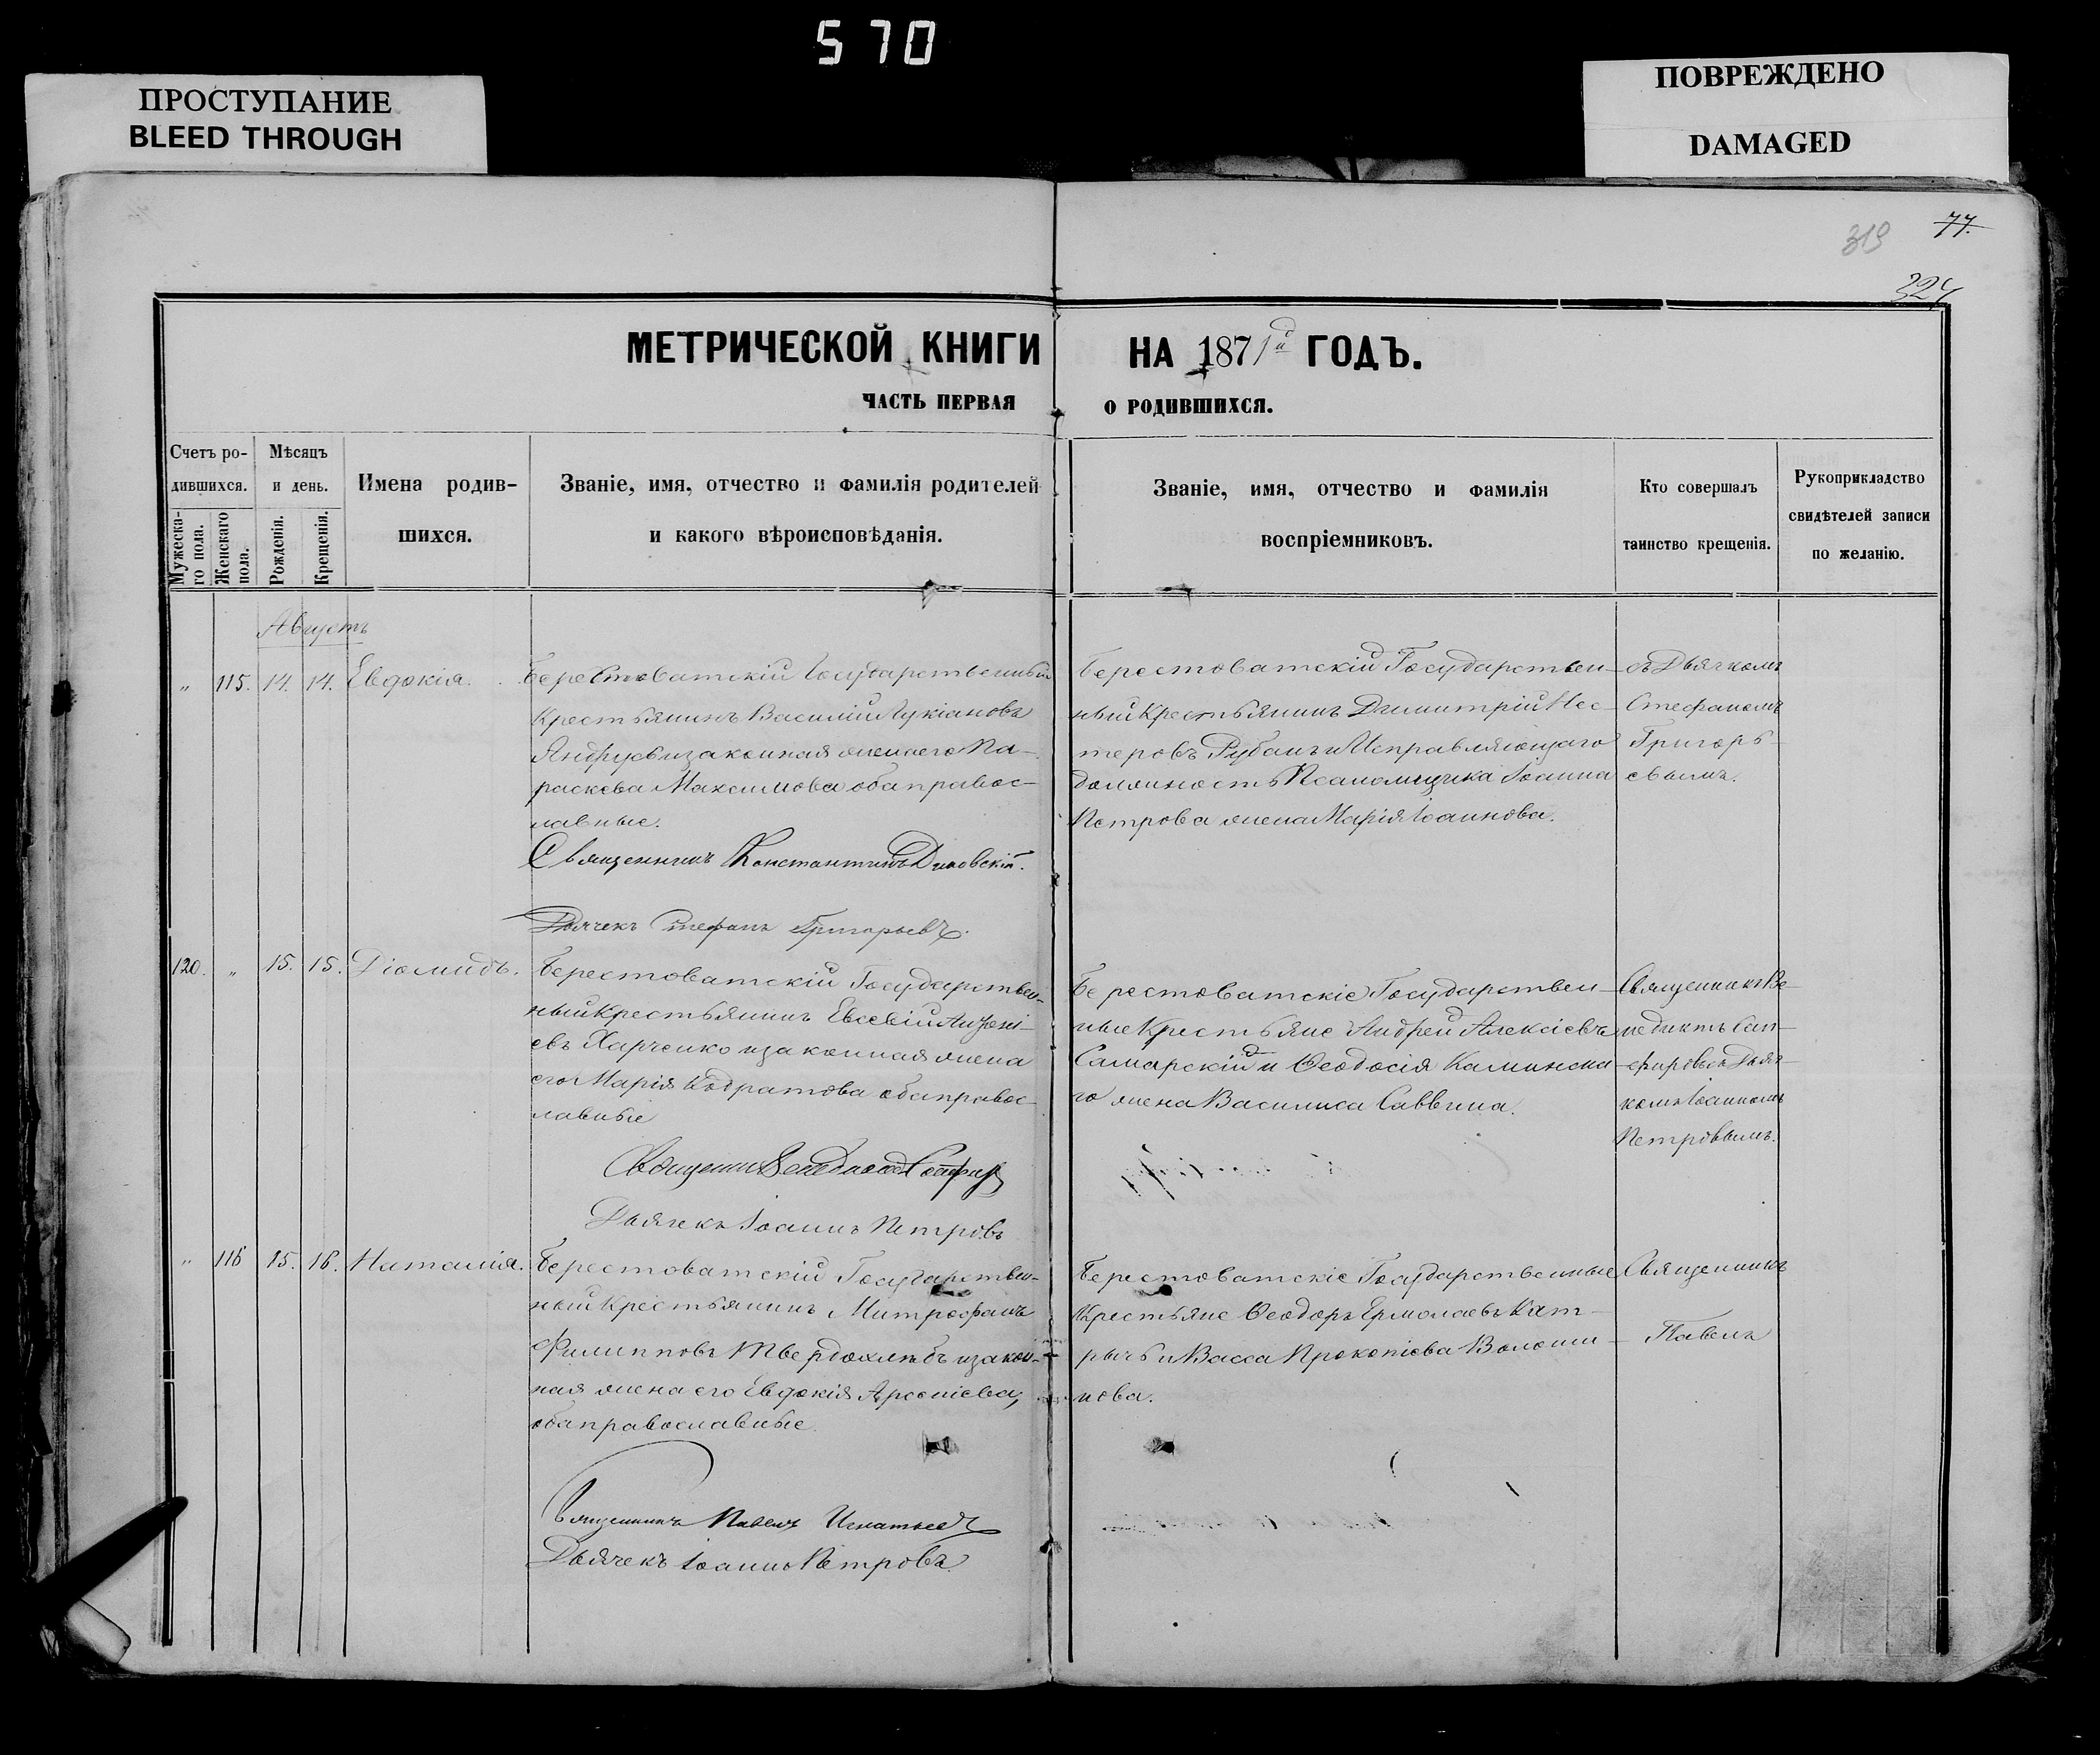 570
ПРОСТУПАНИЕ
BLEED THROUGH
ПОВРЕЖДЕНО
DAMAGED
319
77.
324
МЕТРИЧЕСКОЙ КНИГИ НА 1871й ГОДЪ.
ЧАСТЬ ПЕРВАЯ О РОДИВШИХСЯ.
Счетъ ро-
дившихся.
Мужеска-
го пола.
Женскаго
пола.
Мѣсяцъ
и день.
Рожденія.
Крещенія.
Имена родив-
шихся.
Званіе, имя, отчество и фамилія родителей
и какого вѣроисповѣданія.
Званіе, имя, отчество и фамилія
воспріемниковъ.
Кто совершалъ
таинство крещенія.
Рукоприкладство
свидѣтелей записи
по желанію.
Августъ
„ 115. 14. 14. Евдокія.
Берестоватскій Государственный
Крестьянинъ Василій Лукіановъ
и законная жена его Па-
раскева Максимова оба правос-
лавные.
Священникъ Константинъ
Дьячекъ Стефанъ Григорьевъ.
Берестоватскій Государствен-
ный Крестьянинъ Димитрій Нес-
теровъ Рубанъ и Исправляющаго
должность Псаломщика Іоанна
Петрова жена Марія Іоаннова.
съ Дьячкомъ
Стефаномъ
Григорь-
евымъ.
120. „ 15. 15. Діомидъ.
Берестоватскій Государствен-
ный Крестьянинъ Евсевій
евъ Харченко и законная жена
его Марія Кодратова оба правос-
лавные
Дьячекъ Іоаннъ Петровъ
Берестоватскіе Государствен-
ные Крестьяне Андрей Алексіевъ
Самарскій и Ѳеодосія Калинска-
го жена Василиса Саввина.
Священникъ Ве-
недиктъ Сап-
фировъ съ Дьяч-
комъ Іоанномъ
Петровымъ.
„ 116 15. 16. Наталія.
Берестоватскій Государствен-
ный Крестьянинъ Митрофанъ
Филипповъ Твердохлѣбъ и закон-
ная жена его Евдокія Арсеніева,
оба православные
Священникъ Павелъ Игнатьевъ
Дьячекъ Іоаннъ Петровъ
Берестоватскіе Государственные
Крестьяне Ѳеодоръ Ермолаевъ Кат-
рычь и Васса Прокопіева Волоши-
нова.
Священникъ
Павелъ